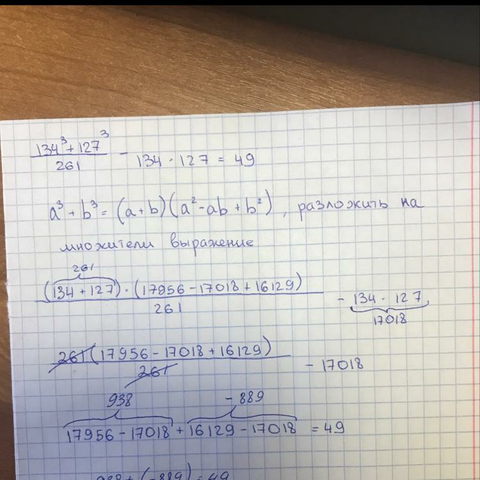 (134³ + 127³) / 261 - 134 · 127 = 49
a³ + b³ = (a+b)(a² - ab + b²), разложить на
множители выражение
261
(134 + 127) · (17956 - 17018 + 16129) / 261 - 134 · 127
17018
261(17956 - 17018 + 16129) / 261 - 17018
938 - 889
17956 - 17018 + 16129 - 17018 = 49
938 + (-889) = 49